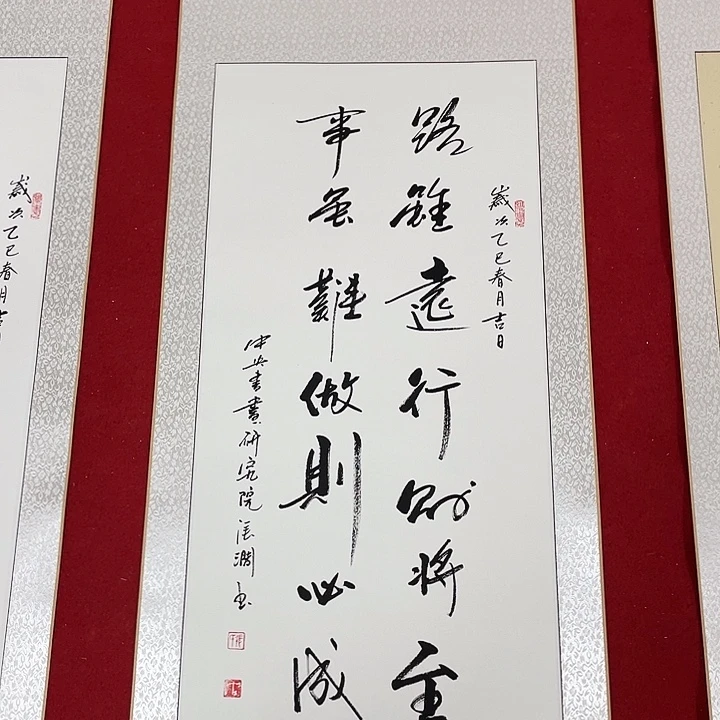 歲次乙巳春月吉日
路雖遠行則將至
事虽難做則必成
中央書畫研究院
書
歲次乙巳春月吉